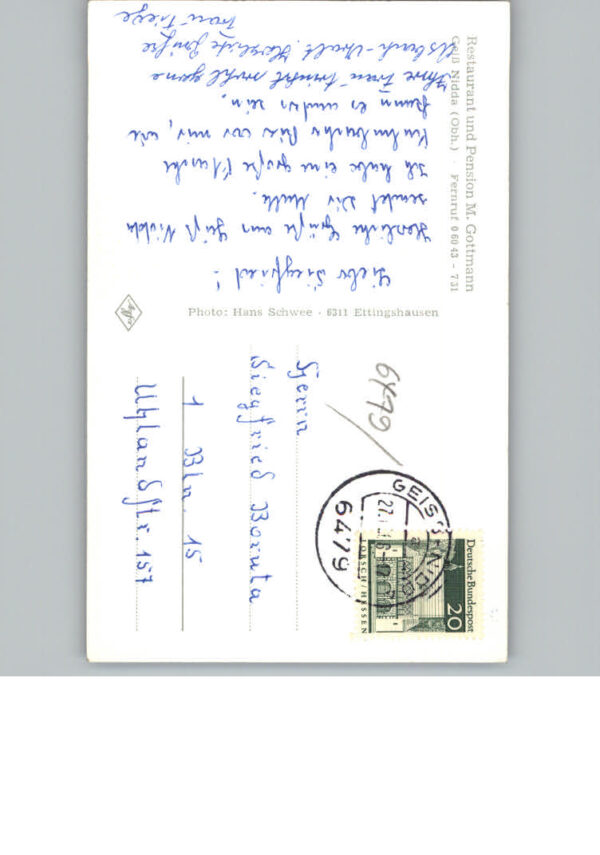 Restaurant und Pension M. Gottmann
Geiß Nidda (Obh.) · Fernruf 06043 - 731
Lieber Siegfried!
Herzliche Grüße aus Geiß Nidda
sendet Dir Mutti.
Ich habe eine große Flasche
Kulmbacher Bier vor mir, wie
kann es anders sein.
Ihre Frau trinkt wohl gerne
Asbach-Uralt. Herzliche Grüße
Frau
Photo: Hans Schwee - 6311 Ettingshausen
Agfa
6479
GEISS-NIDDA
6479
Deutsche Bundespost
20
LORSCH/HESSEN
Herrn
Siegfried Boruta
1 Bln. 15
Uhlandstr. 157